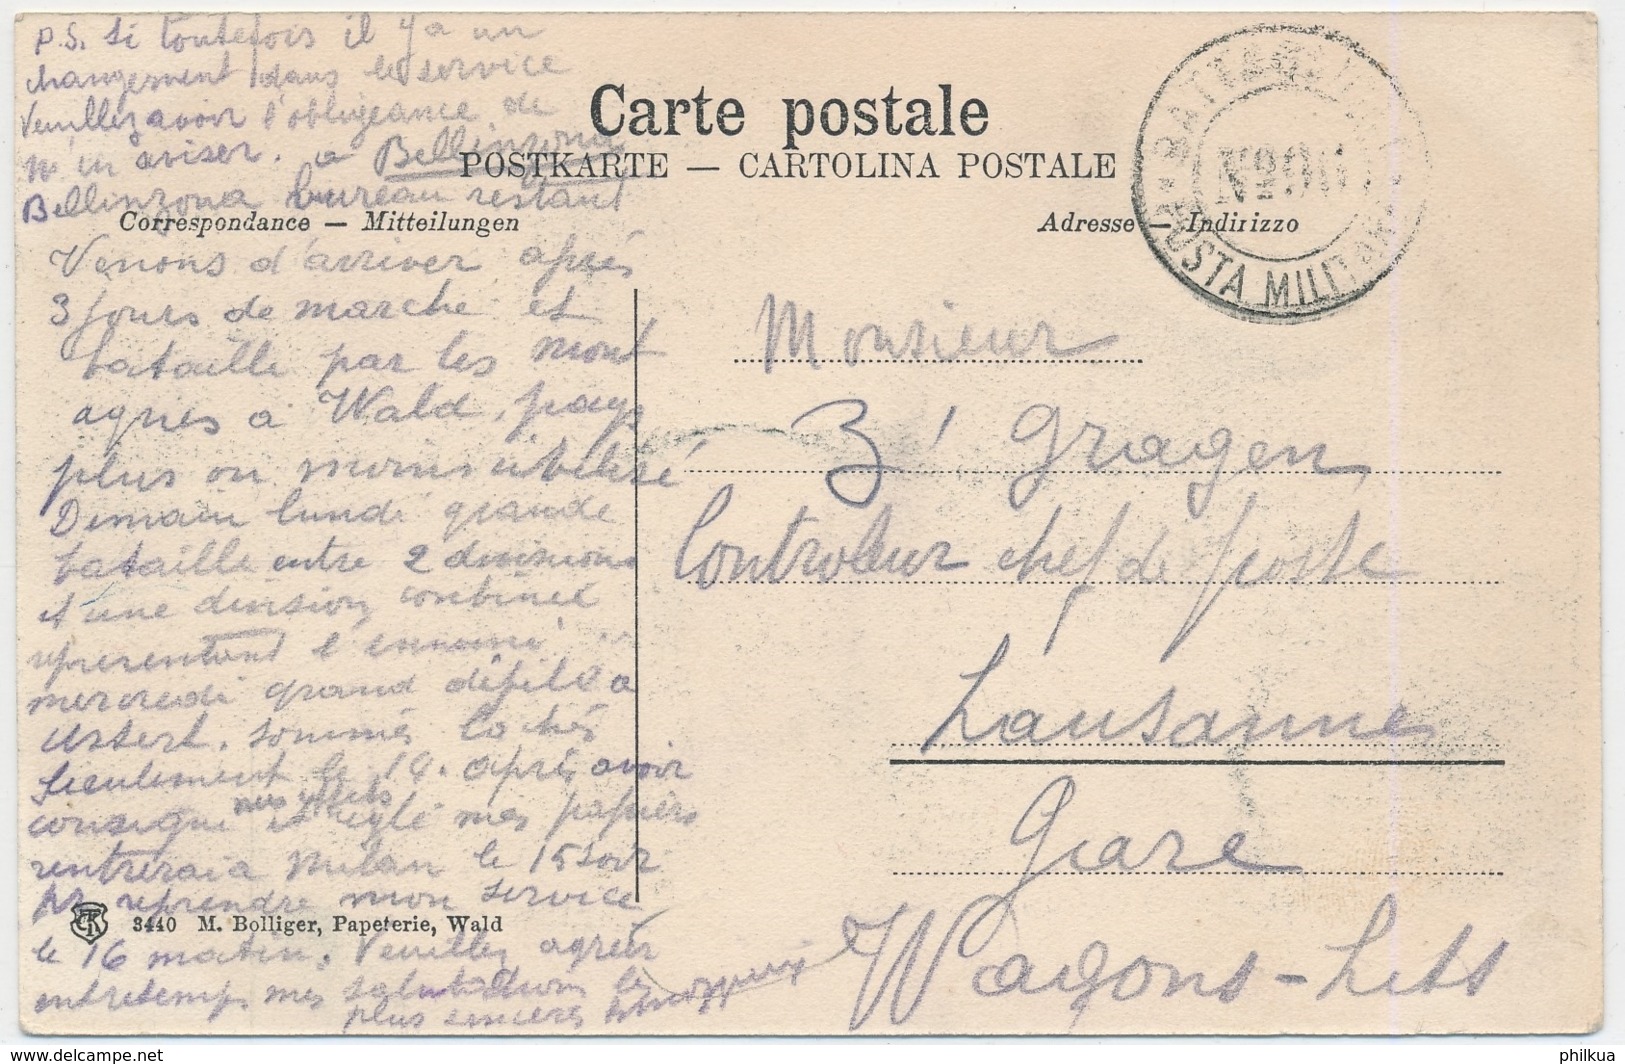 P.S. si toutefois il y a un
changement dans le service
Veuillez avoir l'obligeance de
m'en aviser. a Bellinzona
Bellinzona bureau restant
Carte postale
POSTKARTE — CARTOLINA POSTALE
Correspondance — Mitteilungen
Adresse — Indirizzo
POSTA MILITAR
Venons d'arriver après
3 jours de marche et
bataille par les mont
agnes a Wald, pays
plus ou moins
Demain lundi grande
bataille entre 2 divisions
et une division combinée
representant l'ennemi
mercredi grand défilé a
Ustert. sommes
seulement le après avoir
consigné mes effets et réglé mes papiers
rentrerai a Milan le 15 soir
pr reprendre mon service
le 16 matin. Veuillez agréer
entretemps mes salutations les
plus sincères
3440 M. Bolliger, Papeterie, Wald
Monsieur
Z'Gragen
Controleur chef de poste
Lausanne
Gare
Wagons-Lits
philkua